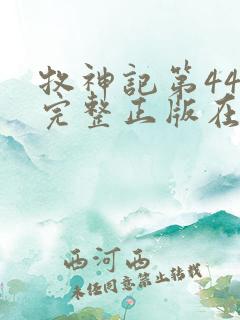 牧神記第44
完整正版在
西河西
未经同意禁止转载